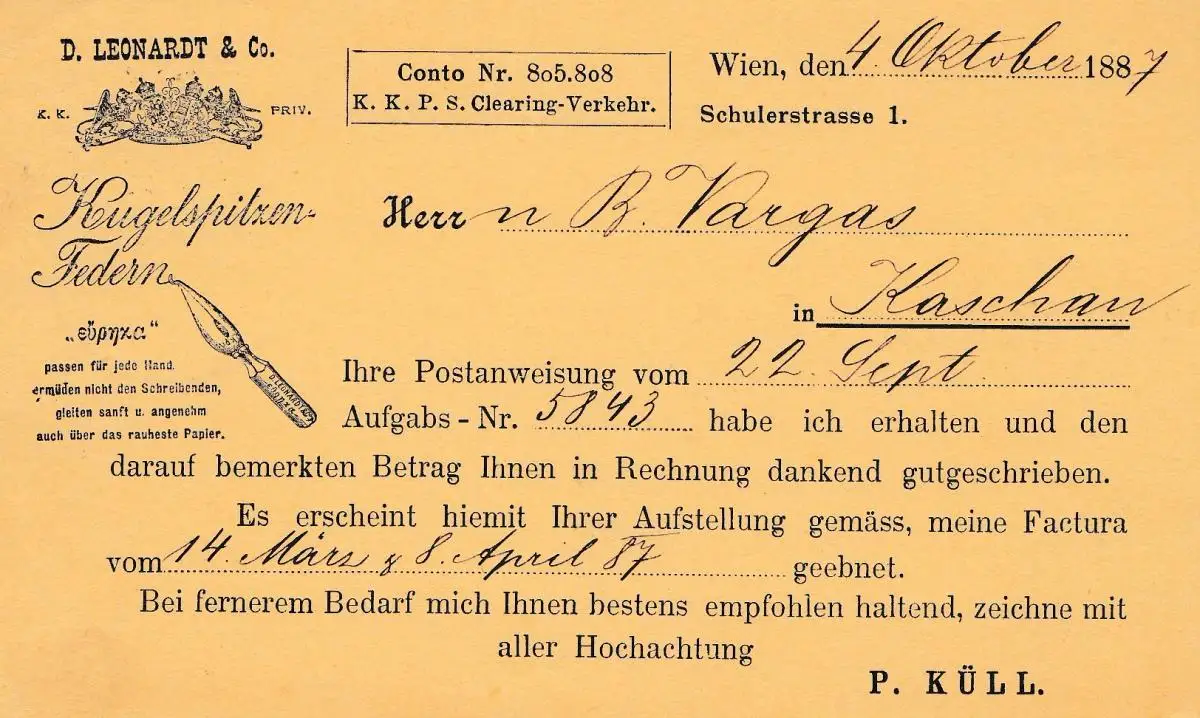 D. LEONARDT & Co.
K. K. PRIV.
Kugelspitzen-
Federn
„εὕρηκα"
passen für jede Hand.
ermüden nicht den Schreibenden,
gleiten sanft u. angenehm
auch über das rauheste Papier.
D. LEONARDT & Co
Conto Nr. 805.808
K. K. P. S. Clearing-Verkehr.
Wien, den 4. Oktober 1887
Schulerstrasse 1.
Herrn B. Vargas
in Kaschau
Ihre Postanweisung vom 22. Sept
Aufgabs - Nr. 5843 habe ich erhalten und den
darauf bemerkten Betrag Ihnen in Rechnung dankend gutgeschrieben.
Es erscheint hiemit Ihrer Aufstellung gemäss, meine Factura
vom 14. März & 8. April 87 geebnet.
Bei fernerem Bedarf mich Ihnen bestens empfohlen haltend, zeichne mit
aller Hochachtung
P. KÜLL.